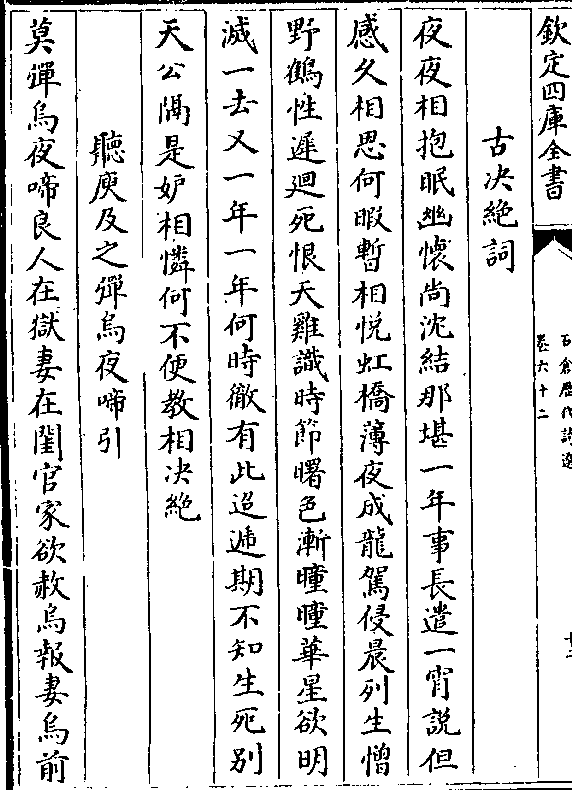 欽定四庫全書
石倉歴代詩選
卷六十二
古决絶詞
夜夜相抱眠幽懷尚沈結那堪一年事長遣一宵說但
感久相思何暇暫相悦虹橋薄夜成龍駕侵晨列生憎
野鶴性遲廻死恨天雞識時節曙色漸曈曈華星欲明
滅一去又一年一年何時徹有此迢遞期不知生死别
天公隔是妒相憐何不便教相决絶
聽庾及之彈烏夜啼引
莫彈烏夜啼良人在獄妻在閨官家欲赦烏報妻烏前